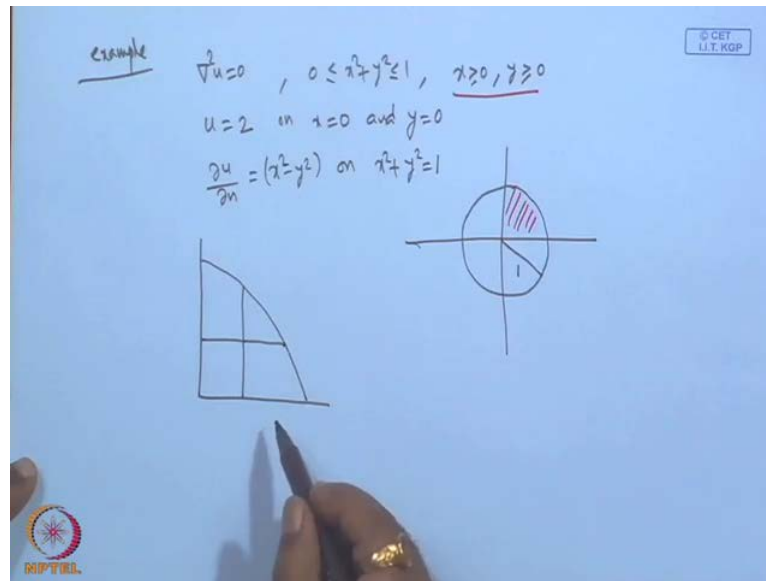 © CET
I.I.T. KGP
example ∇²u=0 , 0 ≤ x²+y² ≤ 1, x≥0, y≥0
u=2 on x=0 and y=0
∂u/∂n = (x²-y²) on x²+y²=1
1
NPTEL